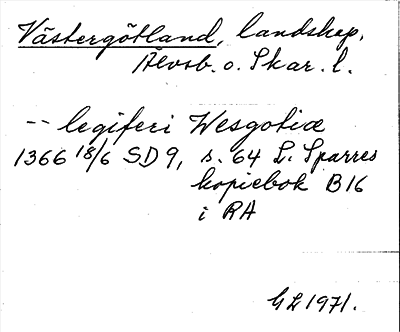 Västergötland, landskap.
Älvsb. o. Skar. l.
-- legiferi Wesgotiæ
1366 18/6 SD 9, s. 64 L. Sparres
kopiebok B 16
i RA
GL 1971.